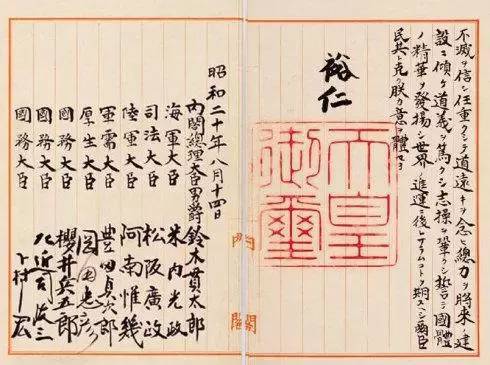 不滅ヲ信シ任重クシテ道遠キヲ念ヒ總力ヲ將來ノ建
設ニ傾ケ道義ヲ篤クシ志操ヲ鞏クシ誓テ國體
ノ精華ヲ發揚シ世界ノ進運ニ後レサラムコトヲ期スヘシ爾臣
民其レ克ク朕カ意ヲ體セヨ
裕仁
天皇
御璽
內閣
昭和二十年八月十四日
內閣總理大臣男爵 鈴木貫太郎
海軍大臣 米內光政
司法大臣 松阪廣政
陸軍大臣 阿南惟幾
軍需大臣 豊田貞次郎
厚生大臣 岡田忠彦
國務大臣 櫻井兵五郎
國務大臣 左近司政三
國務大臣 下村宏